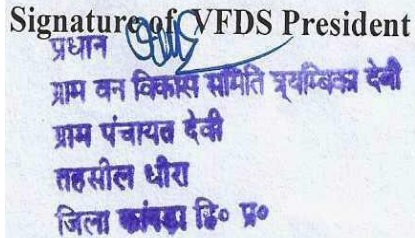 Signature of VFDS President
प्रधान
ग्राम वन विकास समिति त्र्यम्बिका देवी
ग्राम पंचायत देवी
तहसील धीरा
जिला कांगड़ा हि० प्र०